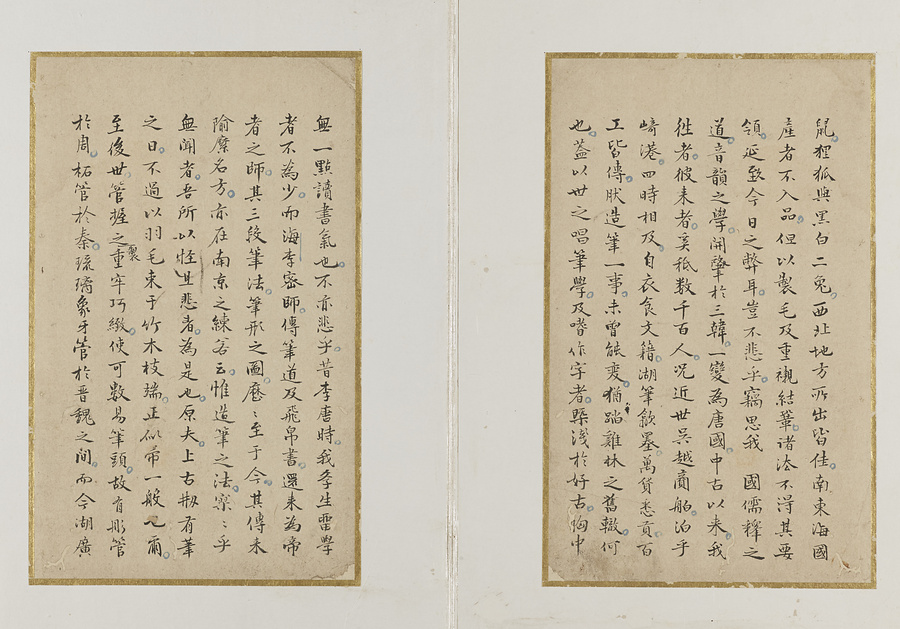 鼠狸狐與黑白二兎西北地方所出皆佳南東海國
産者不入品但以製毛及重襯結筆諸法不得其要
領延致今日之弊耳豈不悲乎竊思我 國儒釋之
道音韻之學開肇於三韓一變為唐國中古以来我
徃者彼来者奚秪数千百人况近世吴越商舶泊乎
崎港四時相及自衣食文籍湖筆歙墨萬貨悉貢百
工皆傳肰造筆一事未曾能変猶踏雞林之舊轍何
也蓋以世之唱筆學及嗜作字者槩淺於好古胸中
無一點讀書氣也不亦悲乎昔李唐時我斈生畱學
者不為少而海密師傳筆道及飛帛書還来為帝
者之師其三段筆法筆形之圖歷〻至于今其傳来
隃糜名方亦在南京之練若云惟造筆之法寥〻乎
無聞者吾所以恠且悲者為是也原夫上古剏有筆
之日不過以羽毛束于竹木枝端正似帚一般也爾
至後世管握之製重牢巧緻使可数易筆頭故有彤管
於周柘管於秦琉璃象牙管於晋魏之間而今湖廣